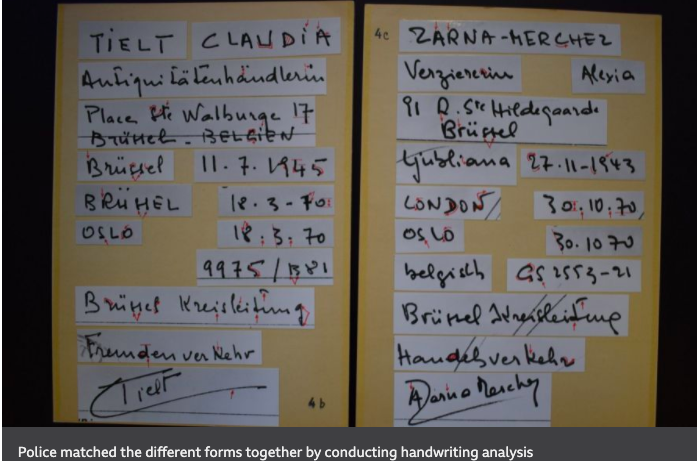 TIELT CLAUDIA
Antiquitätenhändlerin
Place Ste Walburge 17
BRÜSSEL - BELGIEN
Brüssel 11.7.1945
BRÜSSEL 18.3-70
OSLO 18.3.70
9975 / B81
Brüssel Kreisleitung
Fremdenverkehr
Tielt
4b
4c
ZARNA-MERCHEZ
Verziererin Alexia
91 R. Ste Hildegaarde
Brüssel
Ljubliana 27.11-1943
LONDON 30.10.70
OSLO 30.10 70
belgisch GS 2553-21
Brüssel Kreisleitung
Handelsverkehr
Police matched the different forms together by conducting handwriting analysis